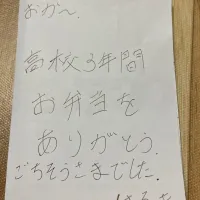 おか〜.
高校3年間
お弁当を
ありがとう.
ごちそうさまでした.